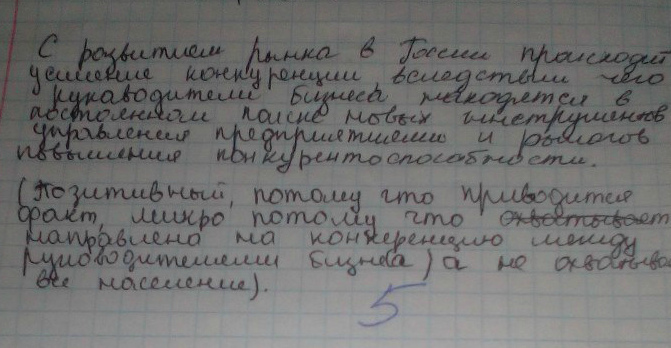 С развитием рынка в России происходит
усиление конкуренции вследствии чего
руководители бизнеса находятся в
постоянном поиске новых инструментов
управления предприятиями и рычагов
повышения конкурентоспособности.
(Позитивный, потому что приводится
факт, микро потому что охватывает
направлена на конкуренцию между
руководителеми бизнеса) а не охватывае
все население).
5